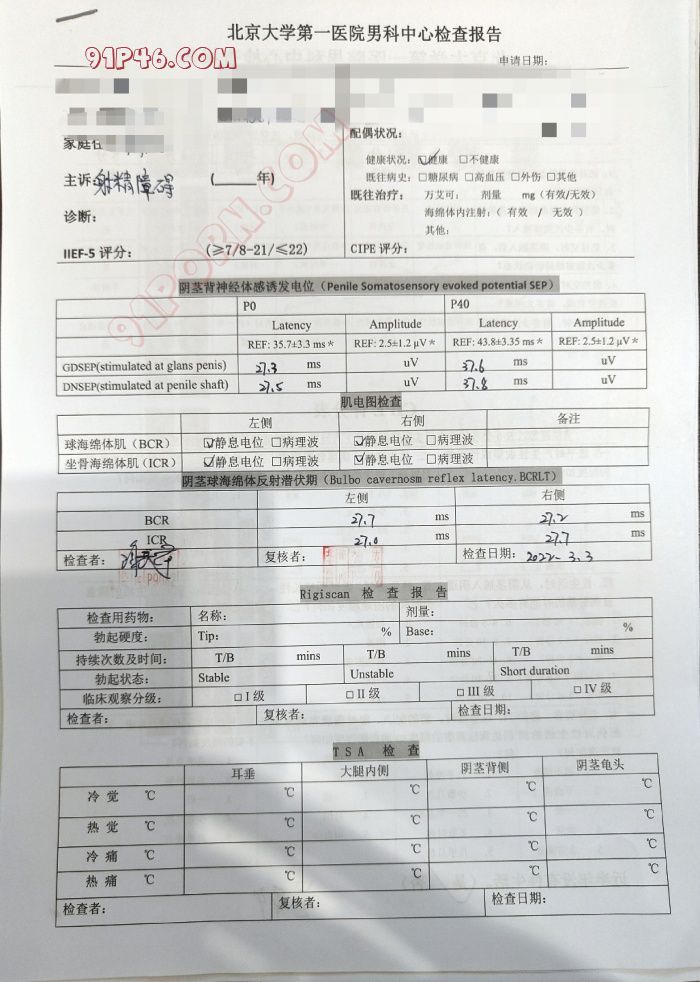 北京大学第一医院男科中心检查报告
91P46.COM
申请日期：
家庭住
配偶状况：
健康状况：☑健康 □不健康
主诉：射精障碍 (____年)
既往病史：□糖尿病 □高血压 □外伤 □其他
既往治疗： 万艾可： 剂量 mg（有效/无效）
诊断：
海绵体内注射：（ 有效 / 无效 ）
其他：
IIEF-5 评分： (≥7/8-21/≤22)
CIPE 评分：
91PORN.COM
阴茎背神经体感诱发电位（Penile Somatosensory evoked potential SEP）
P0 P40
Latency Amplitude Latency Amplitude
REF: 35.7±3.3 ms * REF: 2.5±1.2 μV * REF: 43.8±3.35 ms * REF: 2.5±1.2 μV *
GDSEP(stimulated at glans penis) 27.3 ms uV 37.6 ms uV
DNSEP(stimulated at penile shaft) 27.5 ms uV 37.8 ms uV
肌电图检查
左侧 右侧 备注
球海绵体肌（BCR） ☑静息电位 □病理波 ☑静息电位 □病理波
坐骨海绵体肌（ICR） ☑静息电位 □病理波 ☑静息电位 □病理波
阴茎球海绵体反射潜伏期（Bulbo cavernosm reflex latency.BCRLT）
左侧 右侧
BCR 27.7 ms 27.2 ms
ICR 27.0 ms 27.7 ms
检查者： 复核者： 检查日期：2022-3.3
Rigiscan 检 查 报 告
检查用药物： 名称： 剂量：
勃起硬度： Tip： % Base： %
持续次数及时间： T/B mins T/B mins T/B mins
勃起状态： Stable Unstable Short duration
临床观察分级： □ I 级 □ II 级 □ III 级 □ IV 级
检查者： 复核者： 检查日期：
TSA 检 查
耳垂 大腿内侧 阴茎背侧 阴茎龟头
冷 觉 ℃ ℃ ℃ ℃ ℃
热 觉 ℃ ℃ ℃ ℃ ℃
冷 痛 ℃ ℃ ℃ ℃ ℃
热 痛 ℃ ℃ ℃ ℃ ℃
检查者： 复核者： 检查日期：